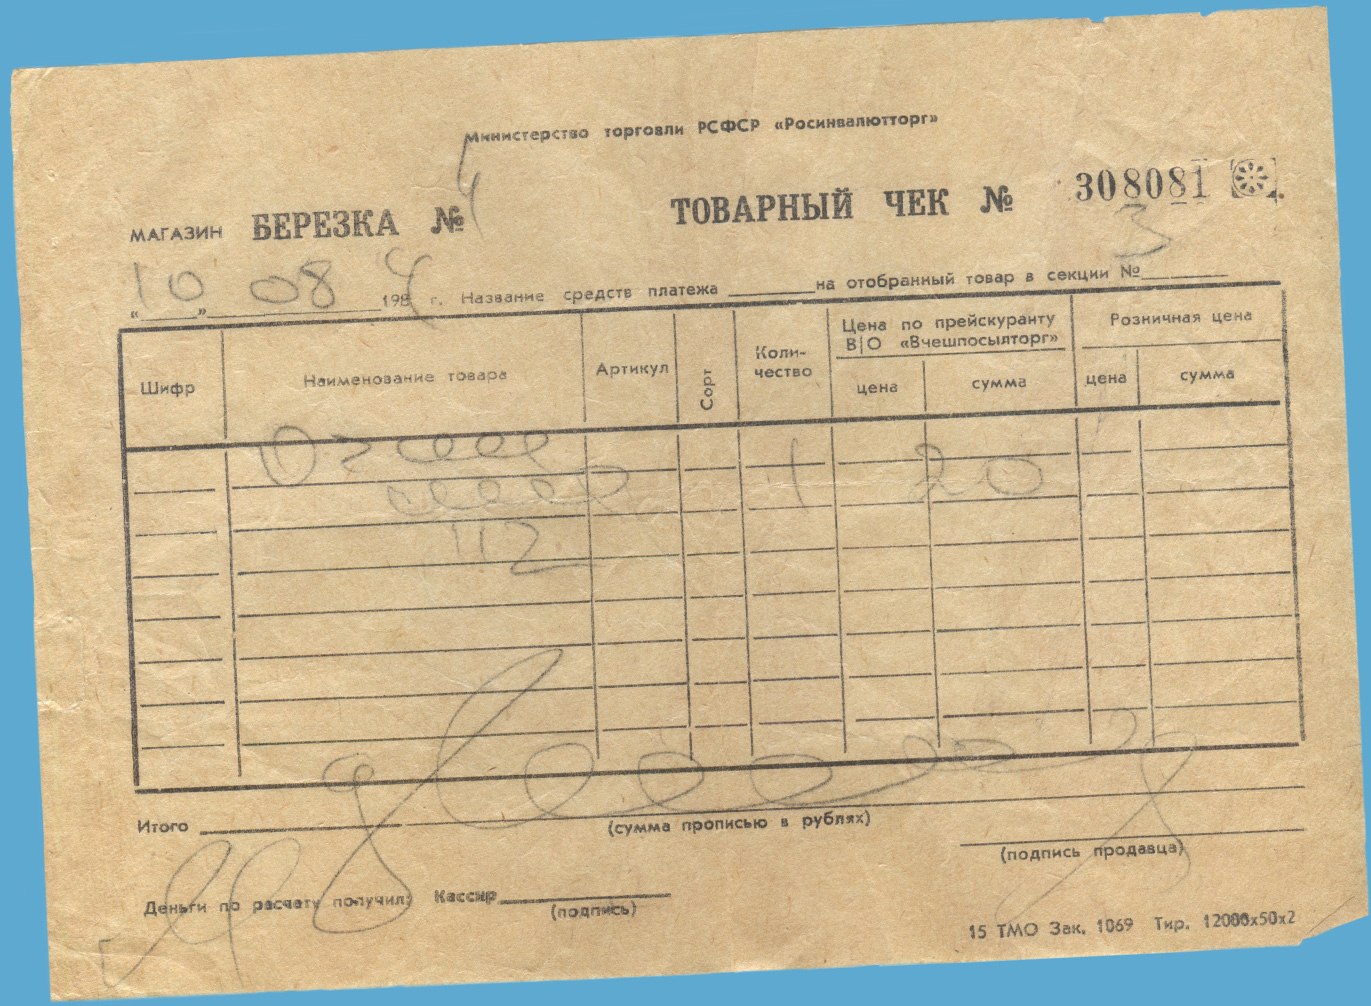 Министерство торговли РСФСР «Росинвалютторг»
МАГАЗИН БЕРЕЗКА № 4 ТОВАРНЫЙ ЧЕК № 308081
«10» 08 1984 г. Название средств платежа на отобранный товар в секции № 3
Шифр Наименование товара Артикул Сорт Коли-чество Цена по прейскуранту В|О «Вчешпосылторг» цена сумма Розничная цена цена сумма
1 20
112
Итого (сумма прописью в рублях)
(подпись продавца)
Деньги по расчету получил: Кассир (подпись)
15 ТМО Зак. 1069 Тир. 12000х50х2